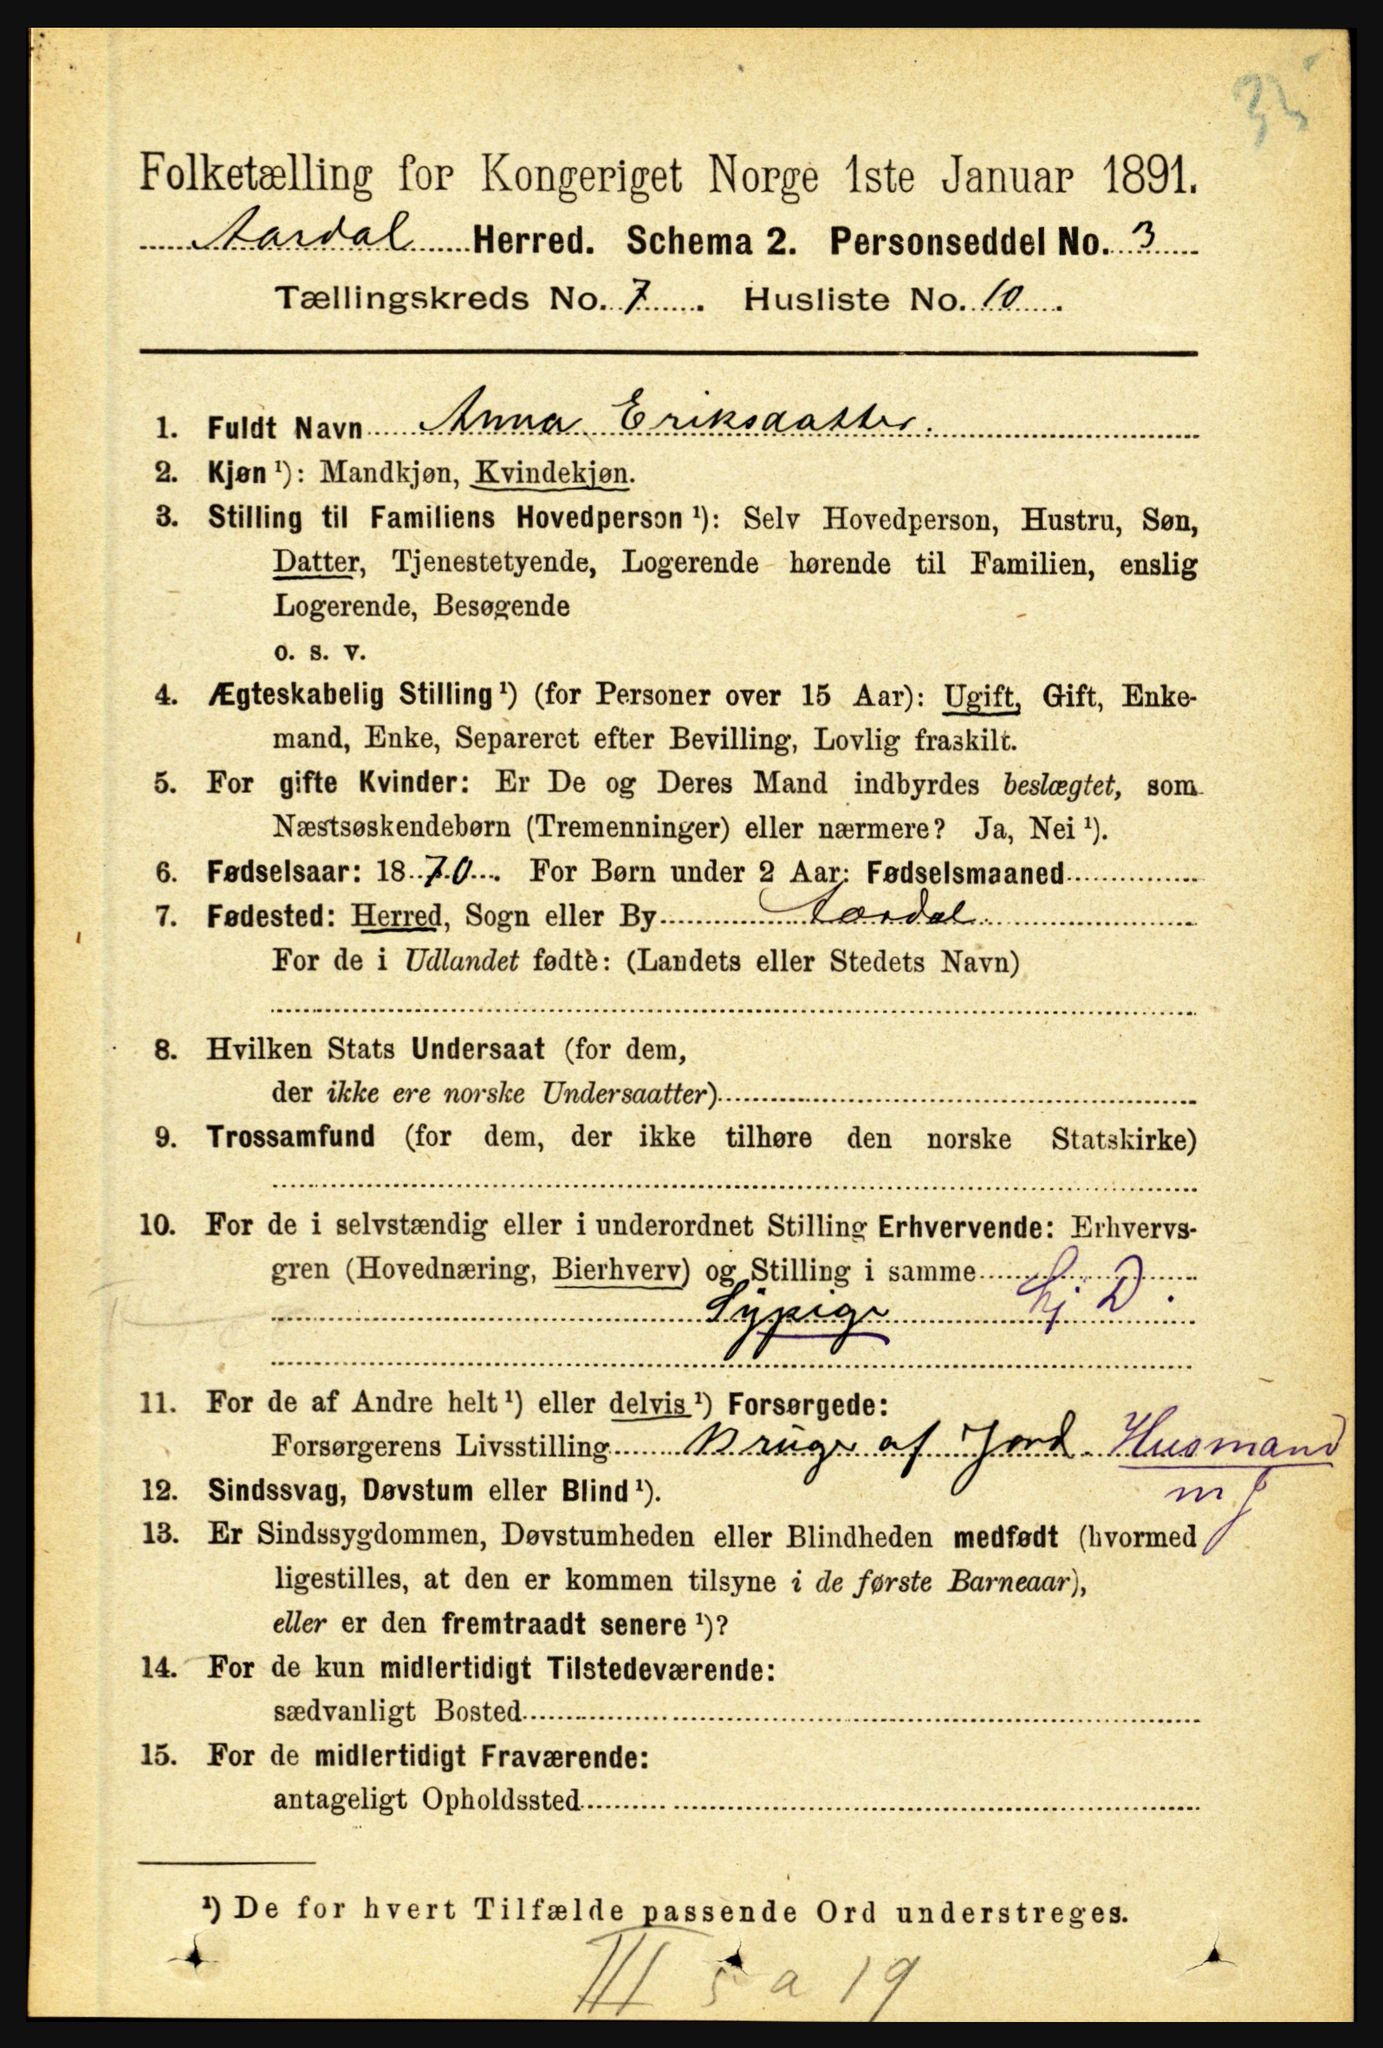 Folketælling for Kongeriget Norge 1ste Januar 1891.
Aardal Herred. Schema 2. Personseddel No. 3
Tællingskreds No. 7. Husliste No. 10.
1. Fuldt Navn Anna Eriksdatter.
2. Kjøn ¹): Mandkjøn, Kvindekjøn.
3. Stilling til Familiens Hovedperson ¹): Selv Hovedperson, Hustru, Søn,
Datter, Tjenestetyende, Logerende hørende til Familien, enslig
Logerende, Besøgende
o. s. v.
4. Ægteskabelig Stilling ¹) (for Personer over 15 Aar): Ugift, Gift, Enke-
mand, Enke, Separeret efter Bevilling, Lovlig fraskilt.
5. For gifte Kvinder: Er De og Deres Mand indbyrdes beslægtet, som
Næstsøskendebørn (Tremenninger) eller nærmere? Ja, Nei ¹).
6. Fødselsaar: 1870. For Børn under 2 Aar: Fødselsmaaned
7. Fødested: Herred, Sogn eller By Aardal
For de i Udlandet fødte: (Landets eller Stedets Navn)
8. Hvilken Stats Undersaat (for dem,
der ikke ere norske Undersaatter)
9. Trossamfund (for dem, der ikke tilhøre den norske Statskirke)
10. For de i selvstændig eller i underordnet Stilling Erhvervende: Erhvervs-
gren (Hovednæring, Bierhverv) og Stilling i samme
Sypige hj D.
11. For de af Andre helt ¹) eller delvis ¹) Forsørgede:
Forsørgerens Livsstilling Bruger af Jord Husmand
m J
12. Sindssvag, Døvstum eller Blind ¹).
13. Er Sindssygdommen, Døvstumheden eller Blindheden medfødt (hvormed
ligestilles, at den er kommen tilsyne i de første Barneaar),
eller er den fremtraadt senere ¹)?
14. For de kun midlertidigt Tilstedeværende:
sædvanligt Bosted
15. For de midlertidigt Fraværende:
antageligt Opholdssted
¹) De for hvert Tilfælde passende Ord understreges.
III 5 a 19